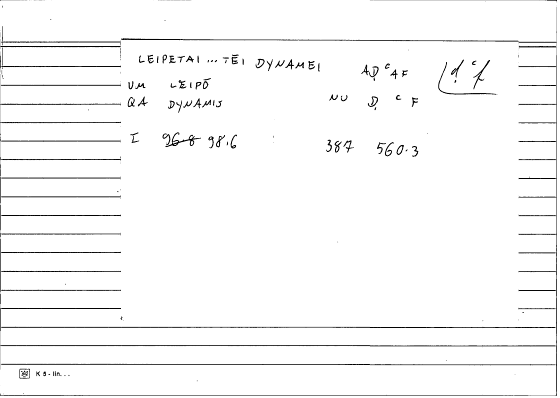 LEIPETAI ... TĒI DYNAMEI AḌ ᶜ AF ḍ ᶜ f
VM LEIPŌ
QA DYNAMIS NU Ḍ ᶜ F
I 96.8 98.6 387 560.3
K 5 - lin. . .